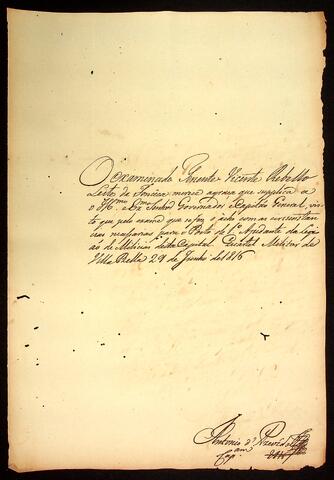 O examinado Tenente Vicente Rebello
Leite de Fonseca merece a graça que supplica a
o Illmo e Exmo Senhor Governador e Capitão General, vis-
to que pelo exame que se fez o acho com as circunstan-
cias necessarias para o Posto de 1º Ajudante da Legi-
ão de Milicias desta Capital. Quartel Militar de
Villa Bella 29 de Junho de 1816
Antonio d'
Capam